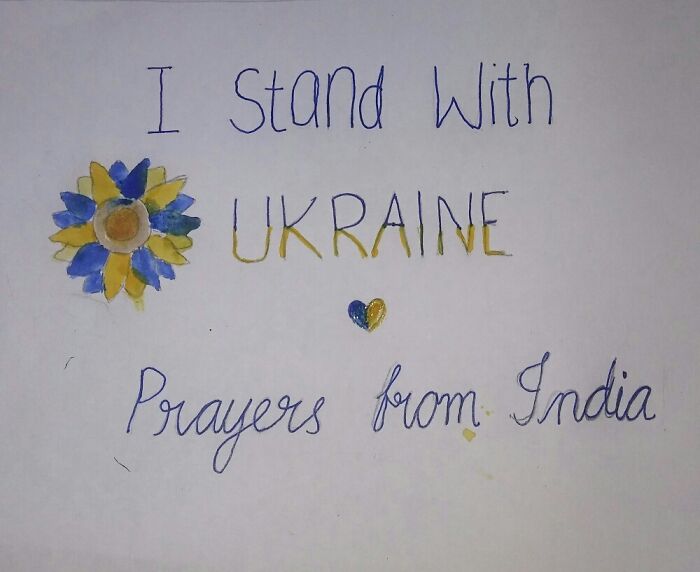 I Stand With
UKRAINE
Prayers from India